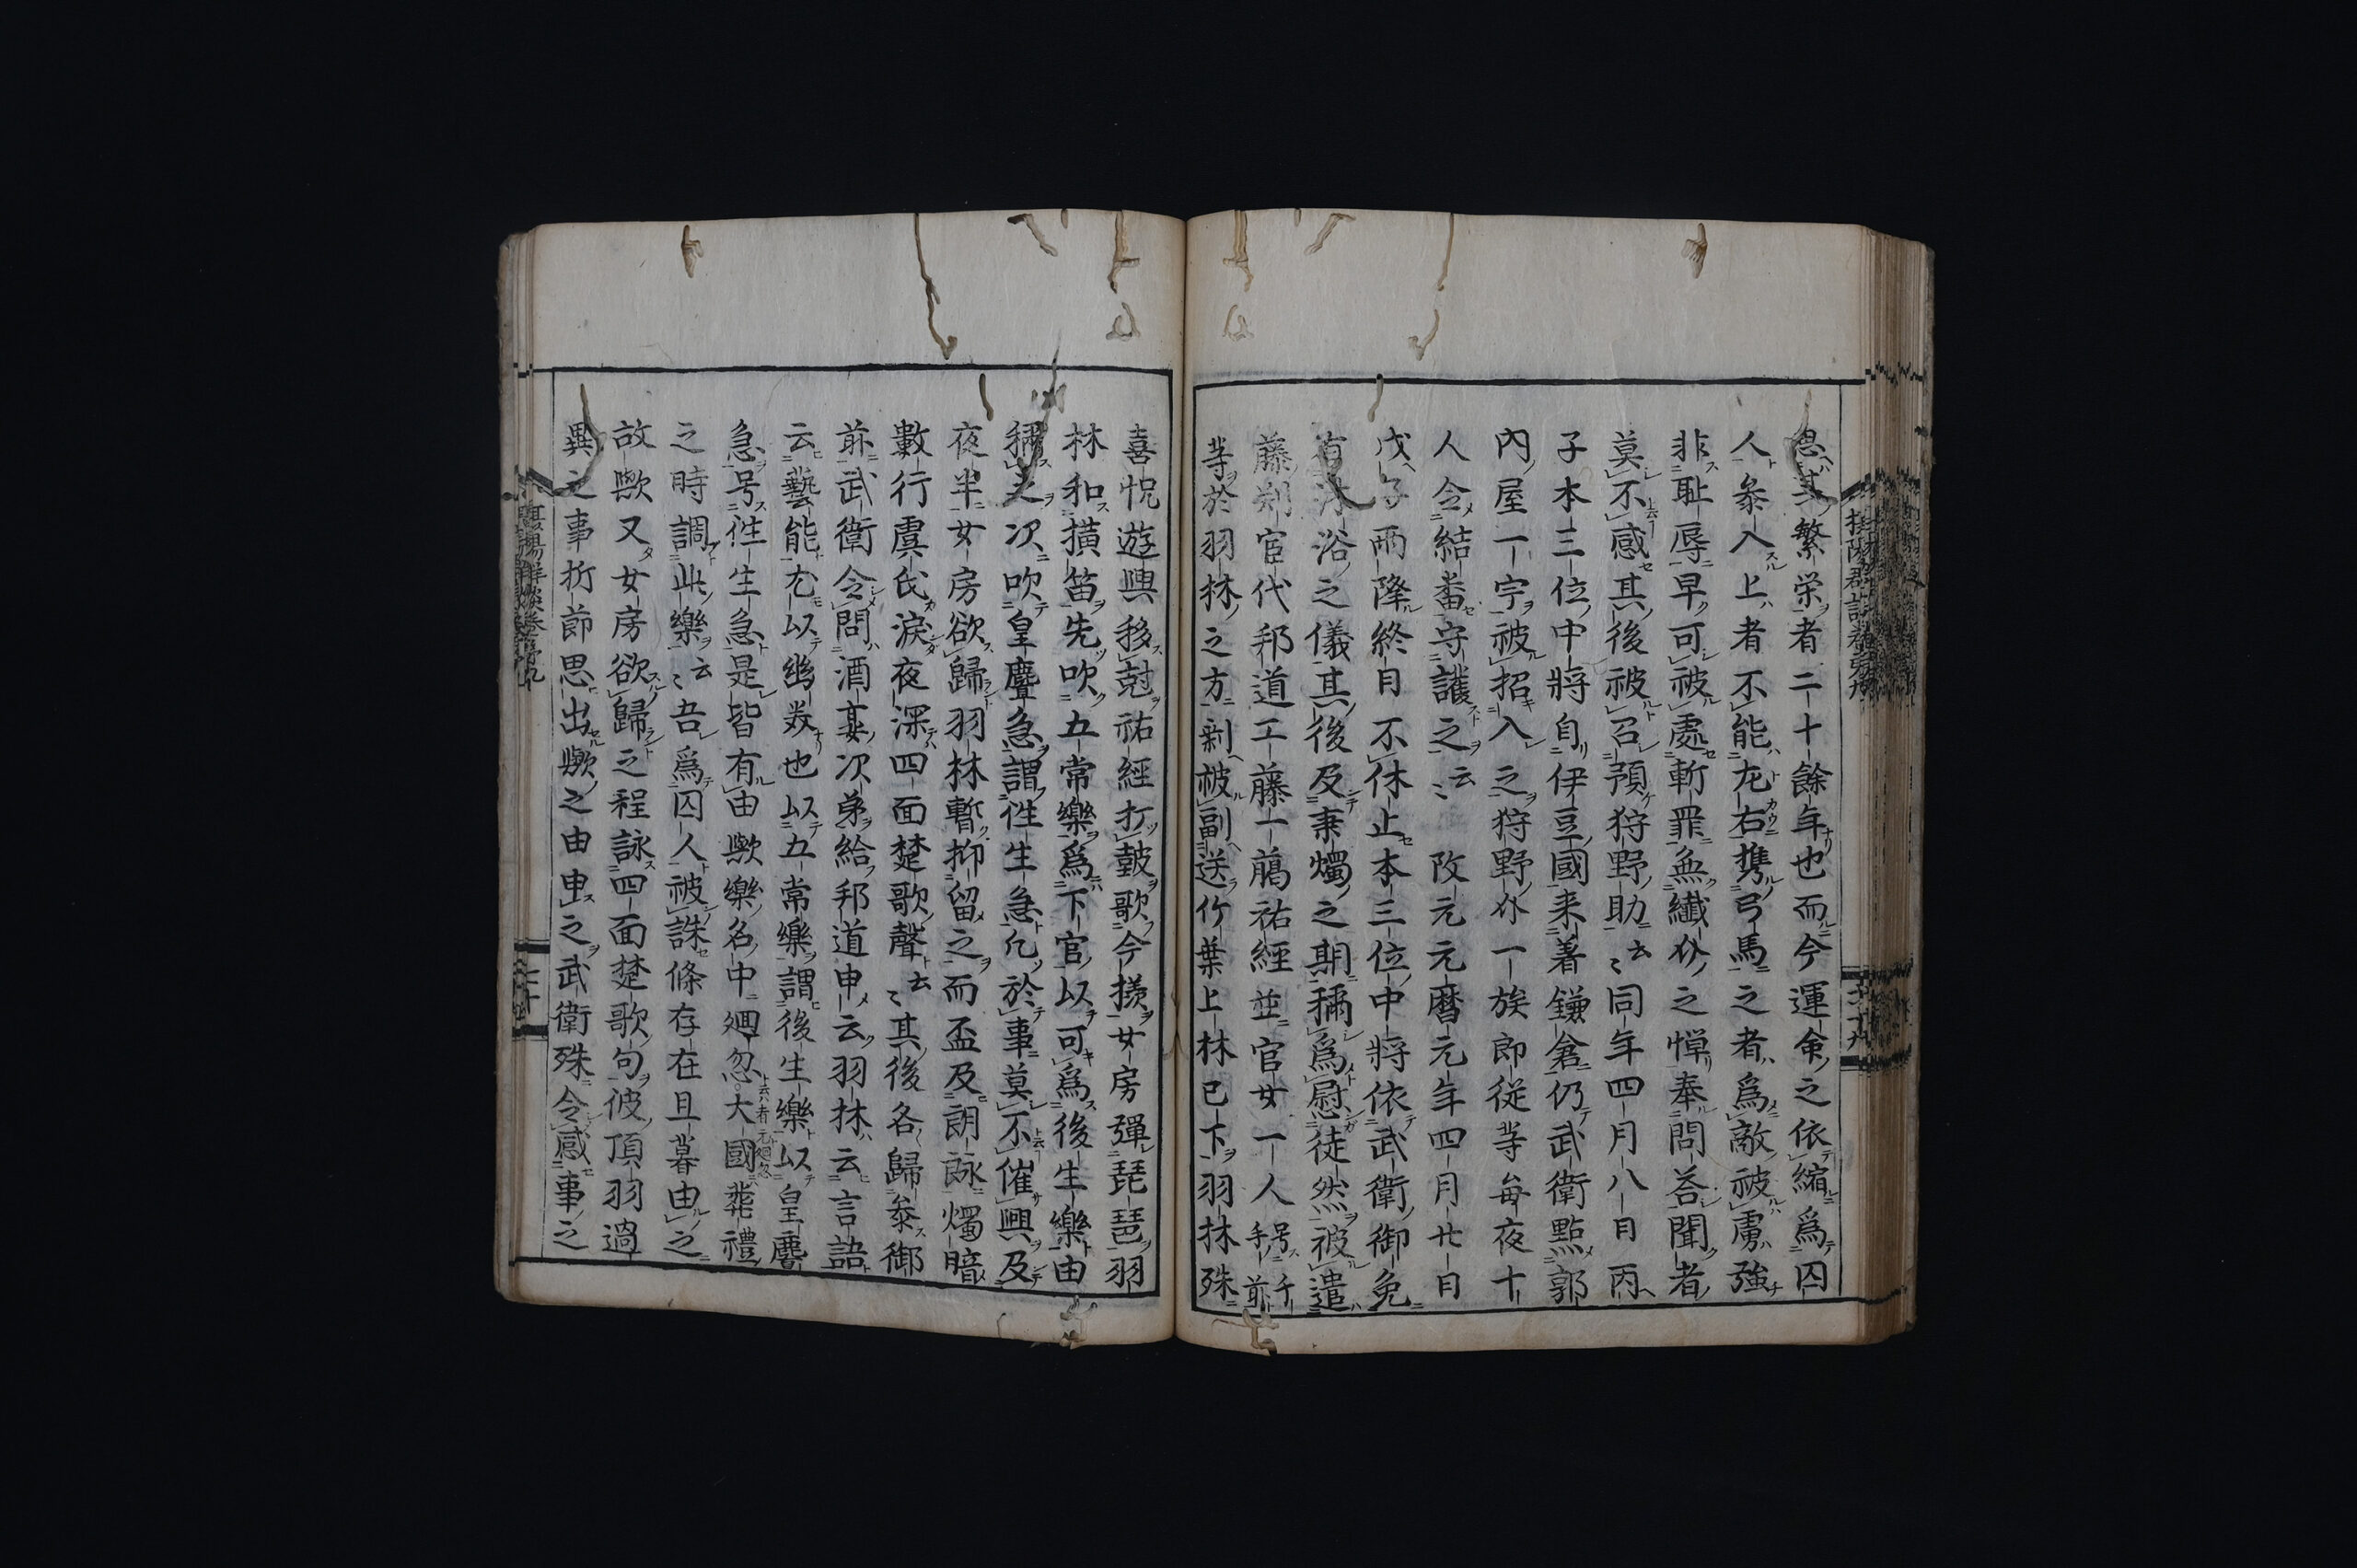 思其繁栄者二十餘年也而今運命之依縮為囚
人參入上者不能左右携弓馬之者為敵被虜強
非耻辱早可被處斬罪無纎芥之憚奉問荅聞者
莫不感其後被召預狩野助云〻同年四月八日丙
子本三位中將自伊豆國来着鎌倉仍武衛點郭
内屋一宇被招入之狩野介一族郎従等毎夜十
人令結畨守護之云〻 改元元暦元年四月廿日
戊子雨降終日不休止本三位中將依武衛御免
有沐浴之儀其後及秉燭之期稱為慰徒然被遣
藤判官代邦道工藤一﨟祐經並官女一人号千手前
等於羽林之方剰被副送竹葉上林已下羽林殊
喜悦遊興移尅祐經打皷歌今様女房彈琵琶羽
林和横笛先吹五常樂為下官以可為後生樂由
稱之次吹皇麞急謂往生急凢於事莫不催興及
夜半女房欲歸羽林暫抑留之而盃及朗詠燭暗
數行虞氏涙夜深四面楚歌聲云〻其後各歸參御
前武衛令問酒宴次第給邦道申云羽林云言語
云藝能尤以幽玅也以五常樂謂後生樂以皇麞
急号往生急是皆有由歟樂名中廻忽大國葬禮
之時調此樂云〻吾為囚人被誅條存在旦暮由之
故歟又女房欲歸之程詠四面楚歌句彼項羽過
異之事折節思出歟之由申之武衛殊令感事之